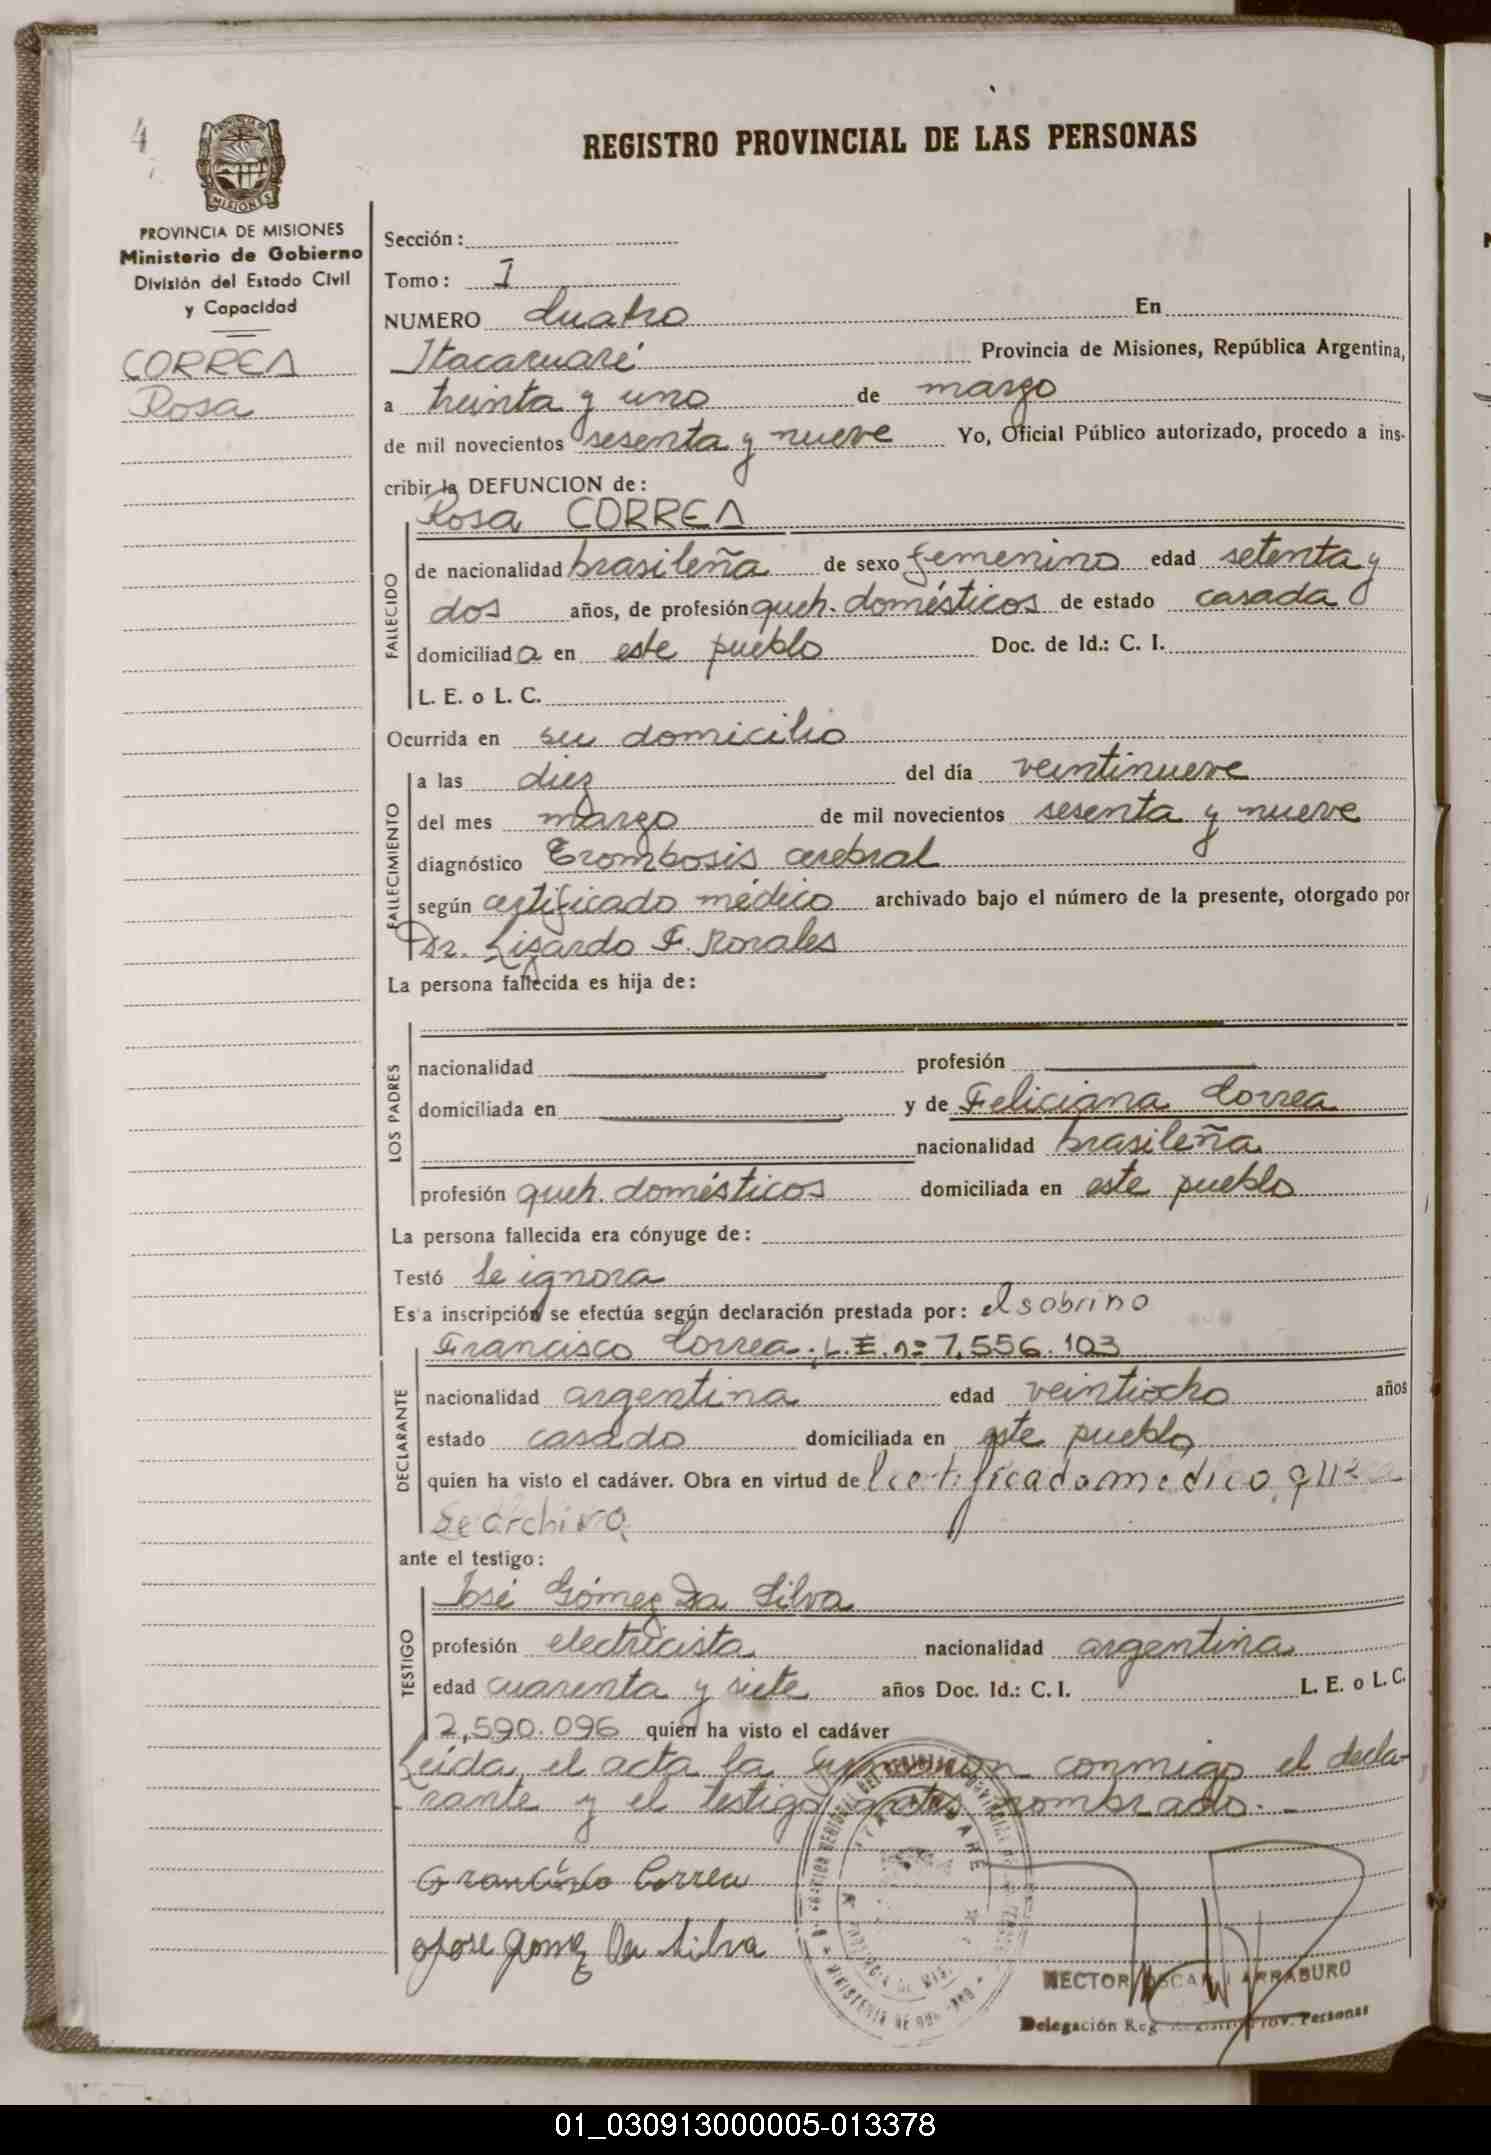 4
REGISTRO PROVINCIAL DE LAS PERSONAS
MISIONES
PROVINCIA DE MISIONES
Ministerio de Gobierno
División del Estado Civil
y Capacidad
CORREA
Rosa
Sección:
Tomo: I
NUMERO Cuatro En
Itacaruaré Provincia de Misiones, República Argentina,
a treinta y uno de marzo
de mil novecientos sesenta y nueve Yo, Oficial Público autorizado, procedo a ins-
cribir la DEFUNCION de:
Rosa CORREA
FALLECIDO
de nacionalidad brasileña de sexo femenino edad setenta y
dos años, de profesión queh. domésticos de estado casada
domiciliada en este pueblo Doc. de Id.: C. I.
L. E. o L. C.
Ocurrida en su domicilio
FALLECIMIENTO
a las diez del día veintinueve
del mes marzo de mil novecientos sesenta y nueve
diagnóstico Trombosis cerebral
según certificado médico archivado bajo el número de la presente, otorgado por
Dr. Lizardo F. Rorales
La persona fallecida es hija de:
LOS PADRES
nacionalidad profesión
domiciliada en y de Feliciana Correa
nacionalidad brasileña
profesión queh. domésticos domiciliada en este pueblo
La persona fallecida era cónyuge de:
Testó Se ignora
Esta inscripción se efectúa según declaración prestada por: el sobrino
Francisco Correa; L.E. nº 7.556.103
DECLARANTE
nacionalidad argentina edad veintiocho años
estado casado domiciliada en este pueblo
quien ha visto el cadáver. Obra en virtud de l certificado médico que
se archiva
ante el testigo:
José Gómez Da Silva
TESTIGO
profesión electricista nacionalidad argentina
edad cuarenta y siete años Doc. Id.: C. I. L. E. o L. C.
2,590.096 quien ha visto el cadáver
Leída el acta la firmaron conmigo el decla-
rante y el testigo antes nombrado.-
Francisco Correa
Jose Gomez Da Silva
HECTOR OSCAR LARRABURO
Delegación Reg. Registro Prov. Personas
01_030913000005-013378